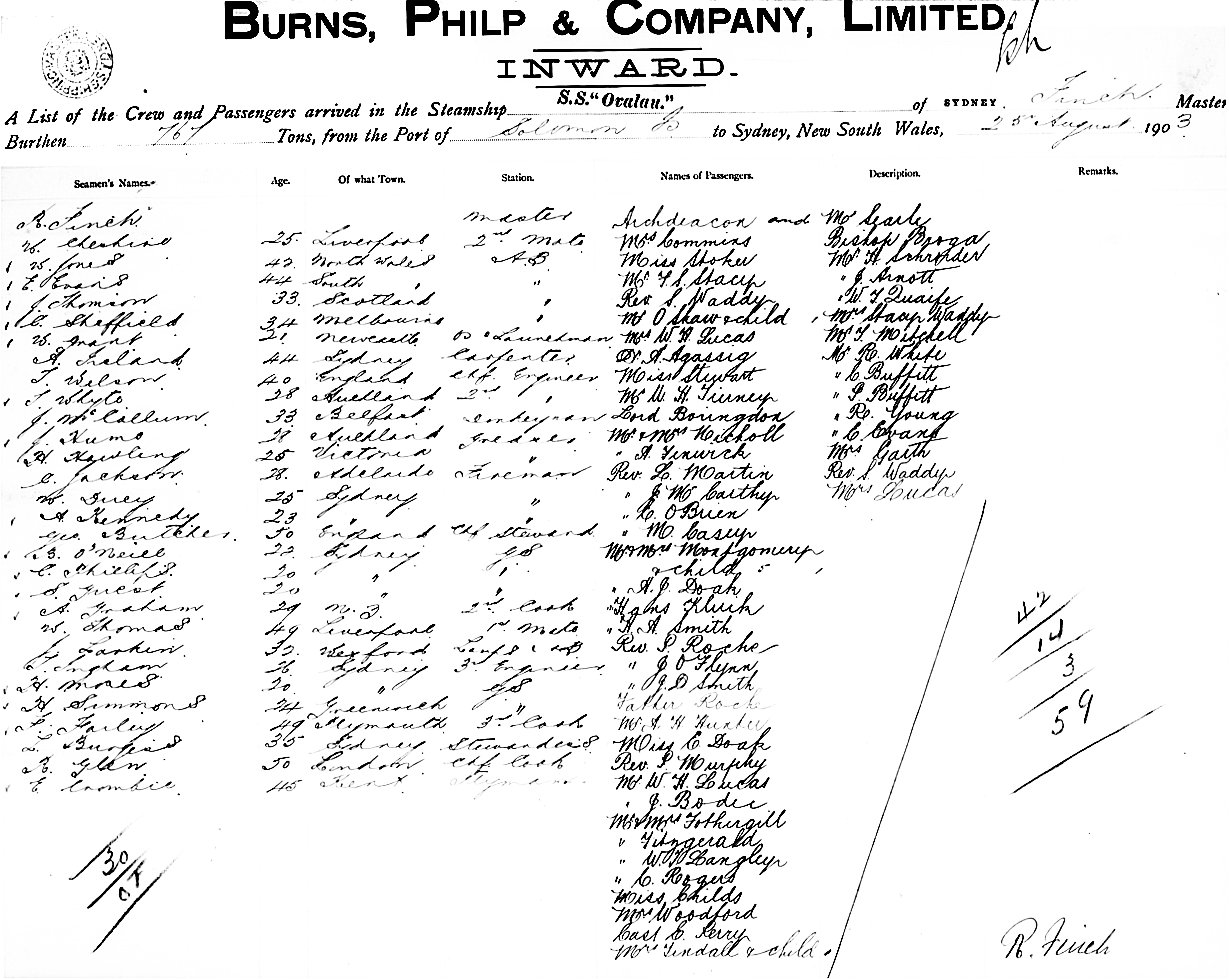 BURNS, PHILP & COMPANY, LIMITED.
INWARD.
S.S. "Ovalau."
A List of the Crew and Passengers arrived in the Steamship of SYDNEY. Finch. Master
Burthen 767 Tons, from the Port of Solomon Is to Sydney, New South Wales, 25 August 1903
Seamen's Names. Age. Of what Town. Station. Names of Passengers. Description. Remarks.
R. Finch Master Archdeacon and Mrs Searle
W. Cheshire 25 Liverpool 2nd Mate Mrs Commins Bishop Broga
W. Jones 42 North Wales A.B Miss Stoker Mr H Schroder
E Evans 44 South " " Mr F. S. Stacy " J. Arnott
J. Thomson 33 Scotland " Rev. S. Waddy " W. J Quaife
C. Sheffield 34 Melbourne " Mr O Shaw & child Mrs Stacy Waddy
W. Grant 21 Newcastle OS & Lampman Mrs W. H Lucas Mr T. Mitchell
A. Ireland 44 Sydney Carpenter Dr. A. Agassig Mr R. White
T. Wilson 40 England Chf. Engineer Miss Stewart " C Buffitt
J. Whyte 28 Auckland 2nd " Mr W. H Tierney " P. Buffitt
J. McCallum 33 Belfast Donkeyman Lord Boringdon " Ro. Young
J. Kumo 28 Auckland Greaser Mr & Mrs Nicholl " C Evans
H. Howling 25 Victoria " " A Fenwick Mrs Garth
C. Jackson 28 Adelaide Fireman Rev. L. Martin Rev. S. Waddy
W. Ducy 25 Sydney " " J. McCarthy Mrs Lucas
A. Kennedy 23 " " " C. OBrien
Geo. Butcher 50 England Chf Steward " M. Casey
B. O'Neill 22 Sydney GS Mr & Mrs Montgomery
C. Phillips 20 " " & child
S. Guest 20 " " " A. J. Doak
A. Graham 29 N. Z 2nd Cook " Hans Kluck
W. Thomas 49 Liverpool 1st Mate " A. A Smith
J. Larkin 32 Wexford Rev. P. Roche
T. Ingham 26 Sydney 3rd Engineer " J O'Flynn
H. Moses 20 " GS " J. D Smith
H Simmons 24 Greenwich " Father Roche
F. Farley 49 Plymouth 3rd Cook Mr A H Hunter
L. Burgess 35 Sydney Stewardess Miss E Doak
R. Glen 50 London Chf Cook Rev. P. Murphy
E Crombie 45 Kent Mr W. H. Lucas
" J. Bodie
Mr & Mrs Fothergill
" Fitzgerald
" W. Langley
" C. Rogers
Miss Childs
Mrs Woodford
Capt E. Kerry
Mrs Tindall & child
30
42
14
3
59
R. Finch